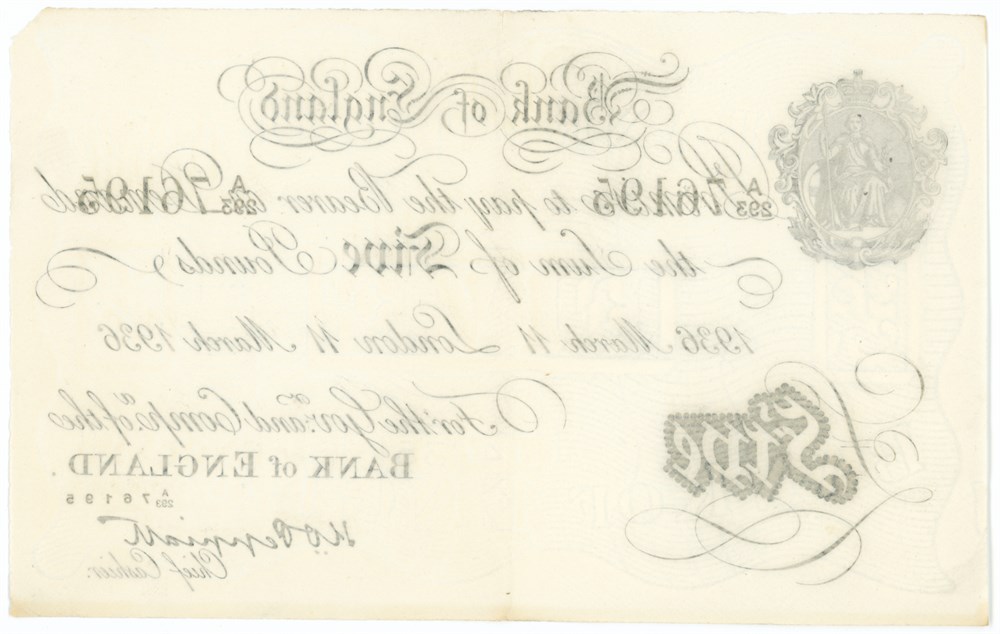 Bank of England
A/293 76195 I Promise to pay the Bearer on Demand A/293 76195
the Sum of Five Pounds
1936 March 11 London 11 March 1936
For the Gov.r and Comp.a of the
BANK of ENGLAND.
A/293 76195
£5 Five
Chief Cashier.